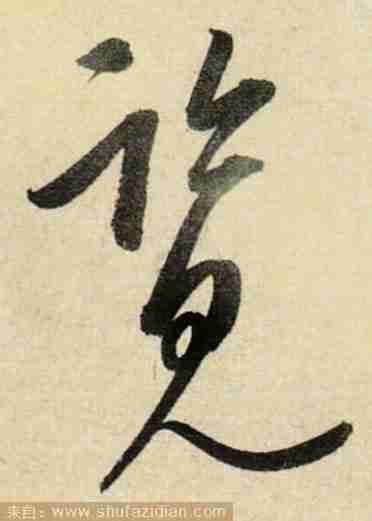 覽
来自：www.shufazidian.com